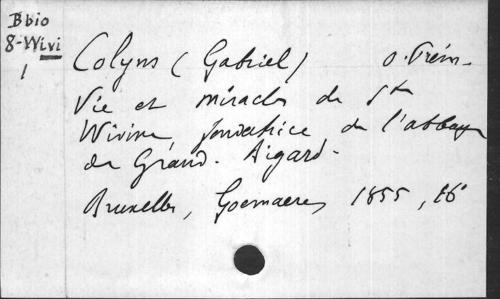 Bbio
8-Wivi
1
Colyns (Gabriel) o. Prém.
Vie et miracles de Ste
Wivine, fondatrice de l'abbaye
de Grand-Bigard.
Bruxelles, Goemaere, 1855, 16°